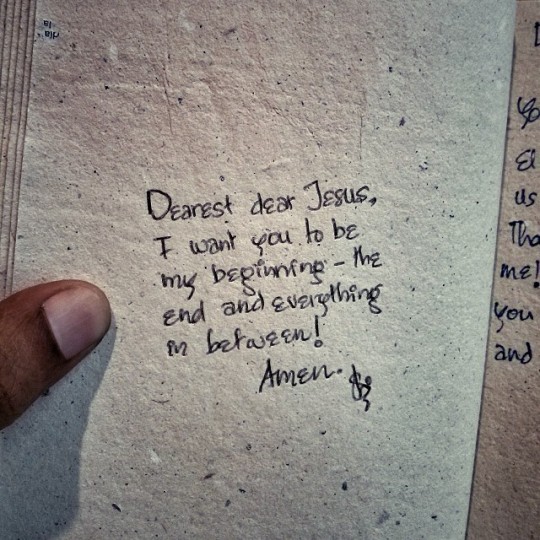 Dearest dear Jesus,
I want you to be
my beginning - the
end and everything
in between!
Amen.
El
us
me!
you
and